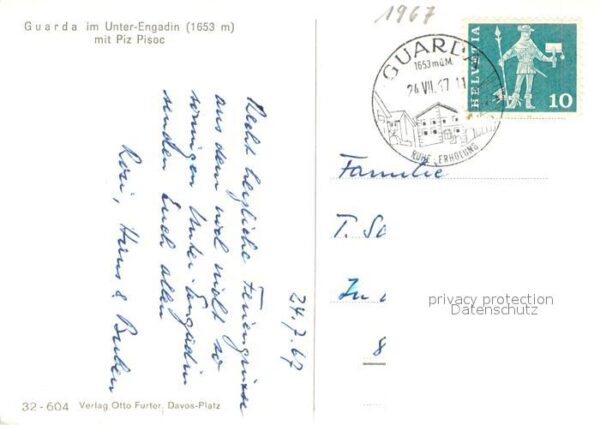 Guarda im Unter-Engadin (1653 m)
mit Piz Pisoc
1967
GUARDA
1653 m.ü.M.
24.VII.67 11
RUHE . ERHOLUNG
HELVETIA
10
24.7.67
Recht herzliche Feriengrüsse
aus dem noch nicht so
sonnigen Unter-Engadin
senden Euch allen
Rosi, Hans & Buben
Familie
T. Sc
In
8
privacy protection
Datenschutz
32-604 Verlag Otto Furter, Davos-Platz